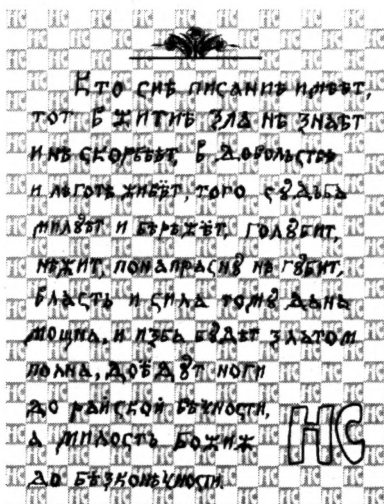 Кто сиѣ писаниѣ имѣет,
тот в житиѣ зла нѣ знаѣт
и нѣ скорбѣѣт, в довольствѣ
и лѣготѣ живѣт, того сꙋдьба
милꙋѣт и бѣрѣжёт, голꙋбит,
нѣжит, понапраснꙋ нѣ гꙋбит,
власть и сила томꙋ дана
мощна, и изба бꙋдѣт златом
полна, дойдꙋт ноги
до райской вѣчности,
а милость Божиѫ
до бѣзконѣчности.
НС